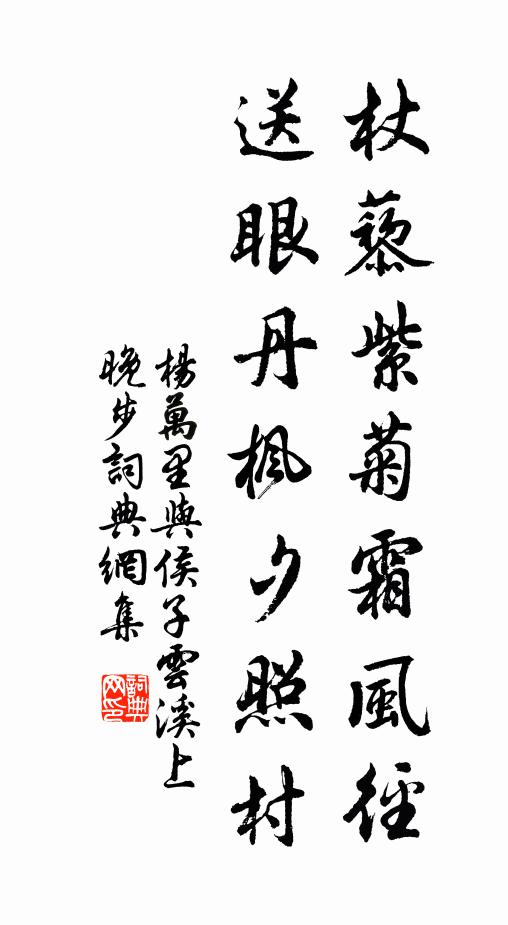 杖藜紫菊霜風徑
送眼丹楓夕照村
楊萬里與侯子雲溪上
晚步詞典網集
詞典
网印